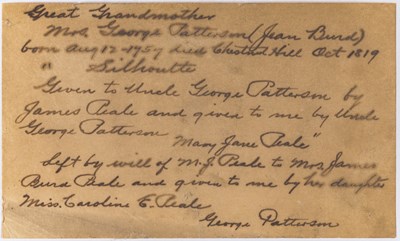 Great Grandmother
Mrs. George Patterson (Jean Burd)
born Aug 12 - 1757 died Chestnut Hill Oct 1819
" Silhouette
Given to Uncle George Patterson by
James Peale and given to me by Uncle
George Patterson
Mary Jane Peale"
Left by will of M. J. Peale to Mrs. James
Burd Peale and given to me by her daughter
Miss. Caroline E. Peale
George Patterson